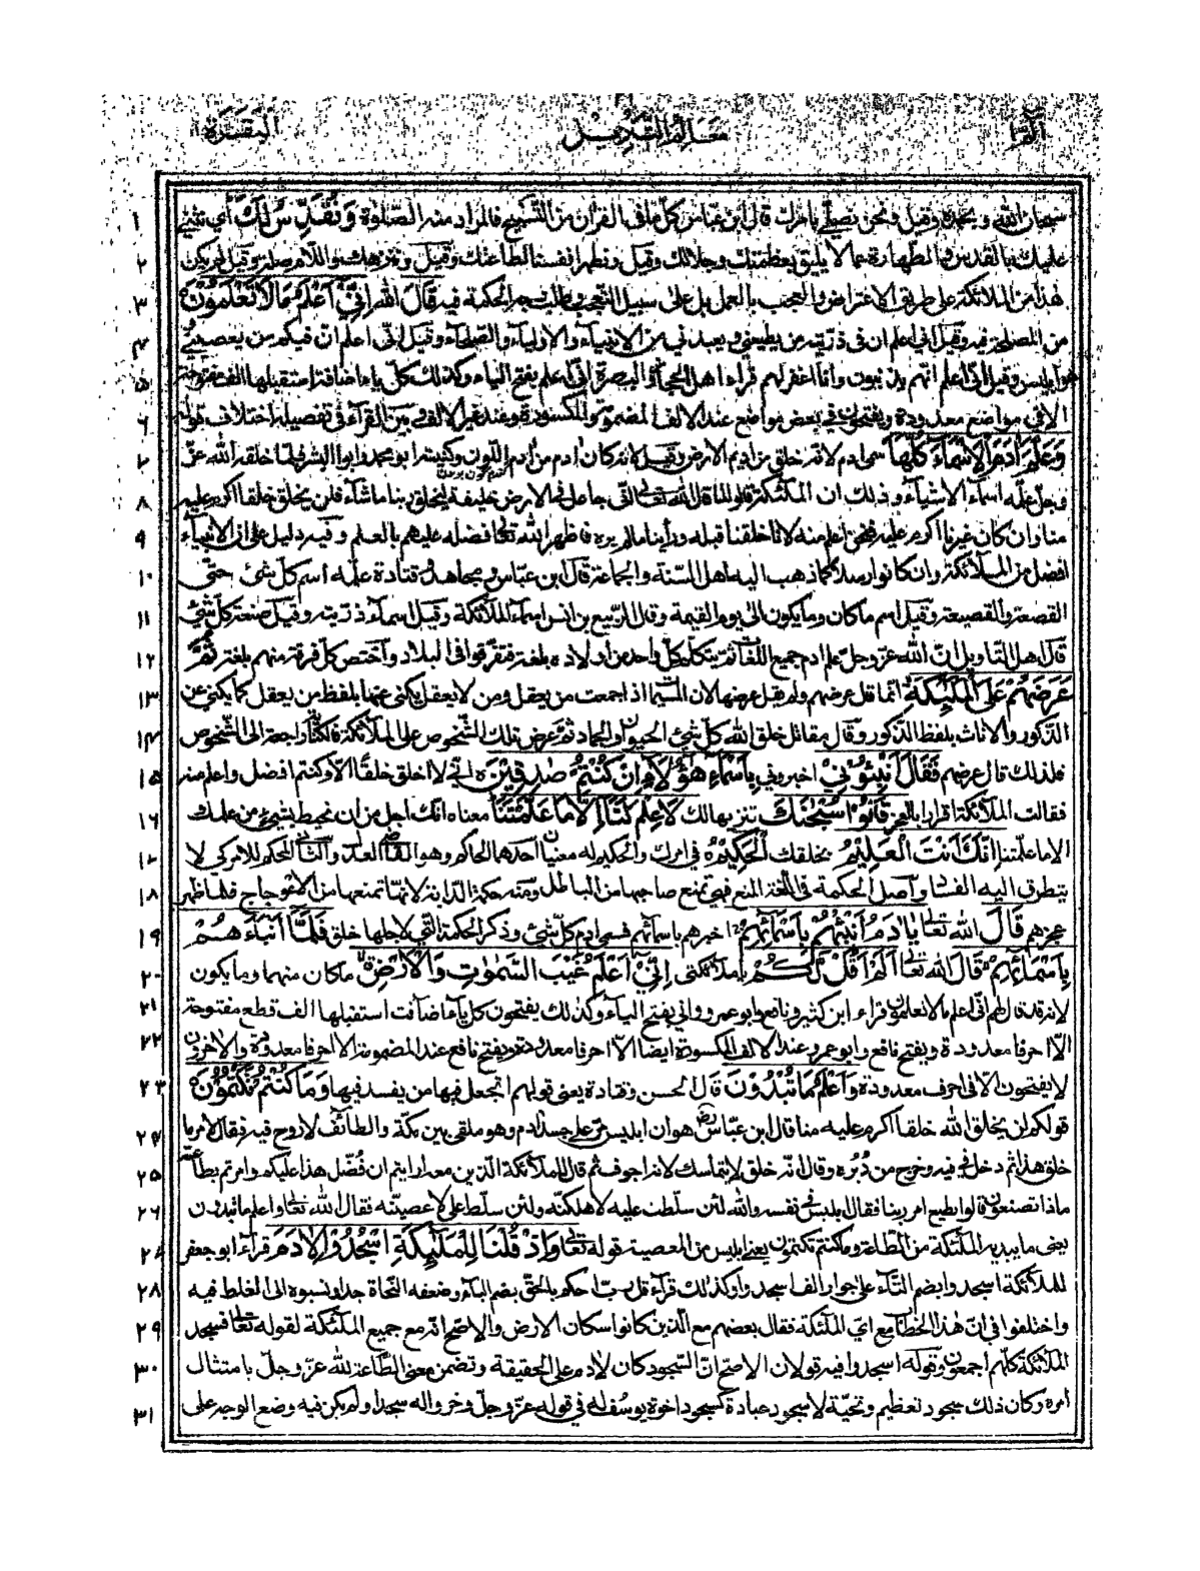 الٓمٓ معالم التنزيل البقرة
١ سبحان الله وبحمده وقيل ونحن نصلي بامرك قال ابن عباس كل ما في القران من التسبيح فالمراد منه الصلوة وَنُقَدِّسُ لَكَ أي نثني
٢ عليك بالقدس والطهارة عما لا يليق بعظمتك وجلالك وقيل ونطهر انفسنا لطاعتك وقيل وننزهك واللام صلة وقيل لم يكن
٣ هذا من الملائكة على طريق الاعتراض والعجب بالعمل بل على سبيل التعجب وطلب وجه الحكمة فيه قَالَ الله اِنِّيْٓ اَعْلَمُ مَالَا تَعْلَمُوْنَ
٤ من المصلحة فيه وقيل اني اعلم ان فى ذريته من يطيعني ويعبدني من الانبياء والاولياء والصلحاء وقيل انى اعلم ان فيكم من يعصينى
٥ هو ابليس وقيل انى اعلم انهم يذنبون وانا اغفر لهم قراء اهل الحجاز والبصرة اني اعلم بفتح الياء وكذلك كل ياء اضافة استقبلها الف مفتوحة
٦ الا في مواضع معدودة ويفتحون في بعض مواضع عند الالف المضمومة والمكسورة وعند غير الالف وبين القراء في تفصيله اختلاف قوله
٧ وَعَلَّمَ اٰدَمَ الْاَسْمَآءَ كُلَّهَا سمى ادم لانه خلق من اديم الارض وقيل لانه كان ادم اللون وكنيته ابو محمد وابو البشر فلما خلقه الله عز
٨ وجل علمه اسماء الاشياء وذلك ان الملئكة قالوا لما قال الله تعالى اني جاعل في الارض خليفة ليخلق ربنا ماشاء فلن يخلق خلقا اكرم عليه
٩ منا وان كان غيرنا اكرم عليه فنحن اعلم منه لانا خلقنا قبله ورأينا مالم يره فاظهر الله تعالى فضله عليهم بالعلم وفيه دليل على ان الانبياء
١٠ افضل من الملائكة وان كانوا رسلا كما ذهب اليه اهل السنة والجماعة قال ابن عباس ومجاهد وقتادة علمه اسم كل شئ حتى
١١ القصعة والقصيعة وقيل اسم ماكان وما يكون الى يوم القيمة وقال الربيع بن انس اسماء الملائكة وقيل اسماء ذريته وقيل صنعة كل شئ
١٢ قال اهل التاويل ان الله عز وجل علم ادم جميع اللغات ثم يتكلم كل واحد من اولاده بلغة فتفرقوا فى البلاد واختص كل فرقة منهم بلغة ثُمَّ
١٣ عَرَضَهُمْ عَلَى الْمَلٰٓئِكَةِ انما قال عرضهم ولم يقل عرضها لان المسميات اذا جمعت من يعقل ومن لا يعقل يكنى عنها بلفظ من يعقل كما يكنى عن
١٤ الذكور والاناث بلفظ الذكور وقال مقاتل خلق الله كل شئ الحيوان والجماد ثم عرض تلك الشخوص على الملائكة فالكناية راجعة الى الشخوص
١٥ فلذلك قال عرضهم فَقَالَ اَنْبِئُوْنِيْ اخبروني بِاَسْمَآءِ هٰٓؤُلَآءِ اِنْ كُنْتُمْ صٰدِقِيْنَ ٥ اني لا اخلق خلقا الا وكنتم افضل واعلم منه
١٦ فقالت الملائكة اقرارا بالعجز قَالُوْا سُبْحٰنَكَ تنزيها لك لَا عِلْمَ لَنَآ اِلَّا مَا عَلَّمْتَنَا معناه انك اجل من ان نحيط بشئ من علمك
١٧ الا ما علمتنا اِنَّكَ اَنْتَ الْعَلِيْمُ بخلقك الْحَكِيْمُ ٥ في امرك والحكيم له معنيان احدهما الحاكم وهو القاضى العدل والثانى المحكم للامر كي لا
١٨ يتطرق اليه الفساد واصل الحكمة فى اللغة المنع فهي تمنع صاحبها من الباطل ومنه حكمة الدابة لانها تمنعها من الاعوجاج فلما ظهر
١٩ عجزهم قَالَ الله تعالى يٰٓاٰدَمُ اَنْبِئْهُمْ بِاَسْمَآئِهِمْ اخبرهم باسمائهم فسمى ادم كل شئ وذكر الحكمة التي لاجلها خلق فَلَمَّآ اَنْبَاَهُمْ
٢٠ بِاَسْمَآئِهِمْ قَالَ الله تعالى اَلَمْ اَقُلْ لَّكُمْ يا ملائكتى اِنِّيْٓ اَعْلَمُ غَيْبَ السَّمٰوٰتِ وَالْاَرْضِ ماكان منهما وما يكون
٢١ لانه قد قال لهم انى اعلم مالا تعلمون قراء ابن كثير ونافع وابو عمرو اني بفتح الياء وكذلك يفتحون كل ياء اضافت استقبلها الف قطع مفتوحة
٢٢ الا احرفا معدودة ويفتح نافع وابو عمرو عند الالف المكسورة ايضا الا احرفا معدودة ويفتح نافع عند المضمومة الا احرفا معدودة والاخرون
٢٣ لا يفتحون الا فى احرف معدودة وَاَعْلَمُ مَا تُبْدُوْنَ قال الحسن وقتادة يعنى قولهم اتجعل فيها من يفسد فيها وَمَا كُنْتُمْ تَكْتُمُوْنَ ٥
٢٤ قولكم لن يخلق الله خلقا اكرم عليه منا قال ابن عباس رض هو ان ابليس مر على جسد ادم وهو ملقى بين مكة والطائف لا روح فيه فقال لامر ما
٢٥ خلق هذا ثم دخل في فيه وخرج من دبره وقال انه خلق لا يتماسك لانه اجوف ثم قال للملائكة الذين معه ارايتم ان فضل هذا عليكم وامرتم بطاعته
٢٦ ماذا تصنعون قالوا نطيع امر ربنا فقال ابليس في نفسه والله لئن سلطت عليه لاهلكنه ولئن سلط علي لاعصينه فقال الله تعالى واعلم ما تبدون
٢٧ يعنى ما يبديه الملئكة من الطاعة وما كنتم تكتمون يعني ابليس من المعصية قوله تعالى وَاِذْ قُلْنَا لِلْمَلٰٓئِكَةِ اسْجُدُوْا لِاٰدَمَ قراء ابو جعفر
٢٨ للملائكة اسجدوا بضم التاء على جوار الف اسجدوا وكذلك قراء قل رب احكم بالحق بضم الباء وضعفه النحاة جدا ونسبوه الى الغلط فيه
٢٩ واختلفوا فى ان هذا الخطاب مع اي الملئكة فقال بعضهم مع الذين كانوا سكان الارض والاصح انه مع جميع الملئكة لقوله تعالى فسجد
٣٠ الملائكة كلهم اجمعون وقوله اسجدوا فيه قولان الاصح ان السجود كان لادم على الحقيقة وتضمن معنى الطاعة لله عز وجل بامتثال
٣١ امره وكان ذلك سجود تعظيم وتحية لا سجود عبادة كسجود اخوة يوسف له في قوله عز وجل وخروا له سجدا ولم يكن فيه وضع الوجه على